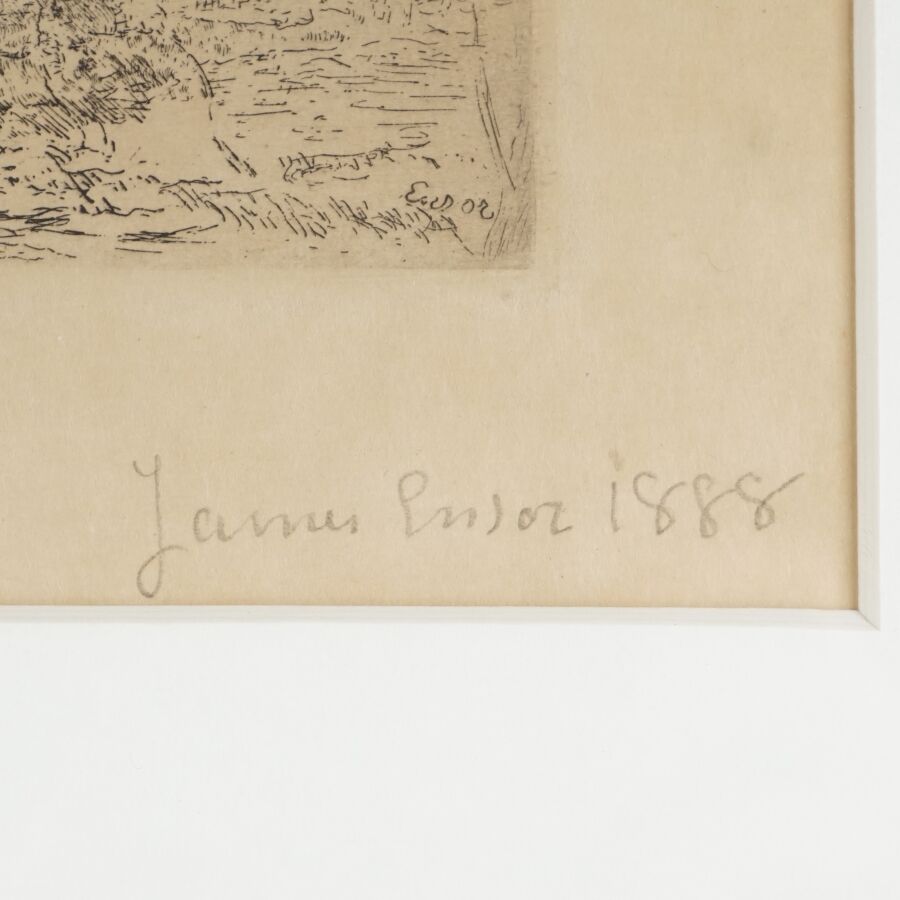 Ensor
James Ensor 1888